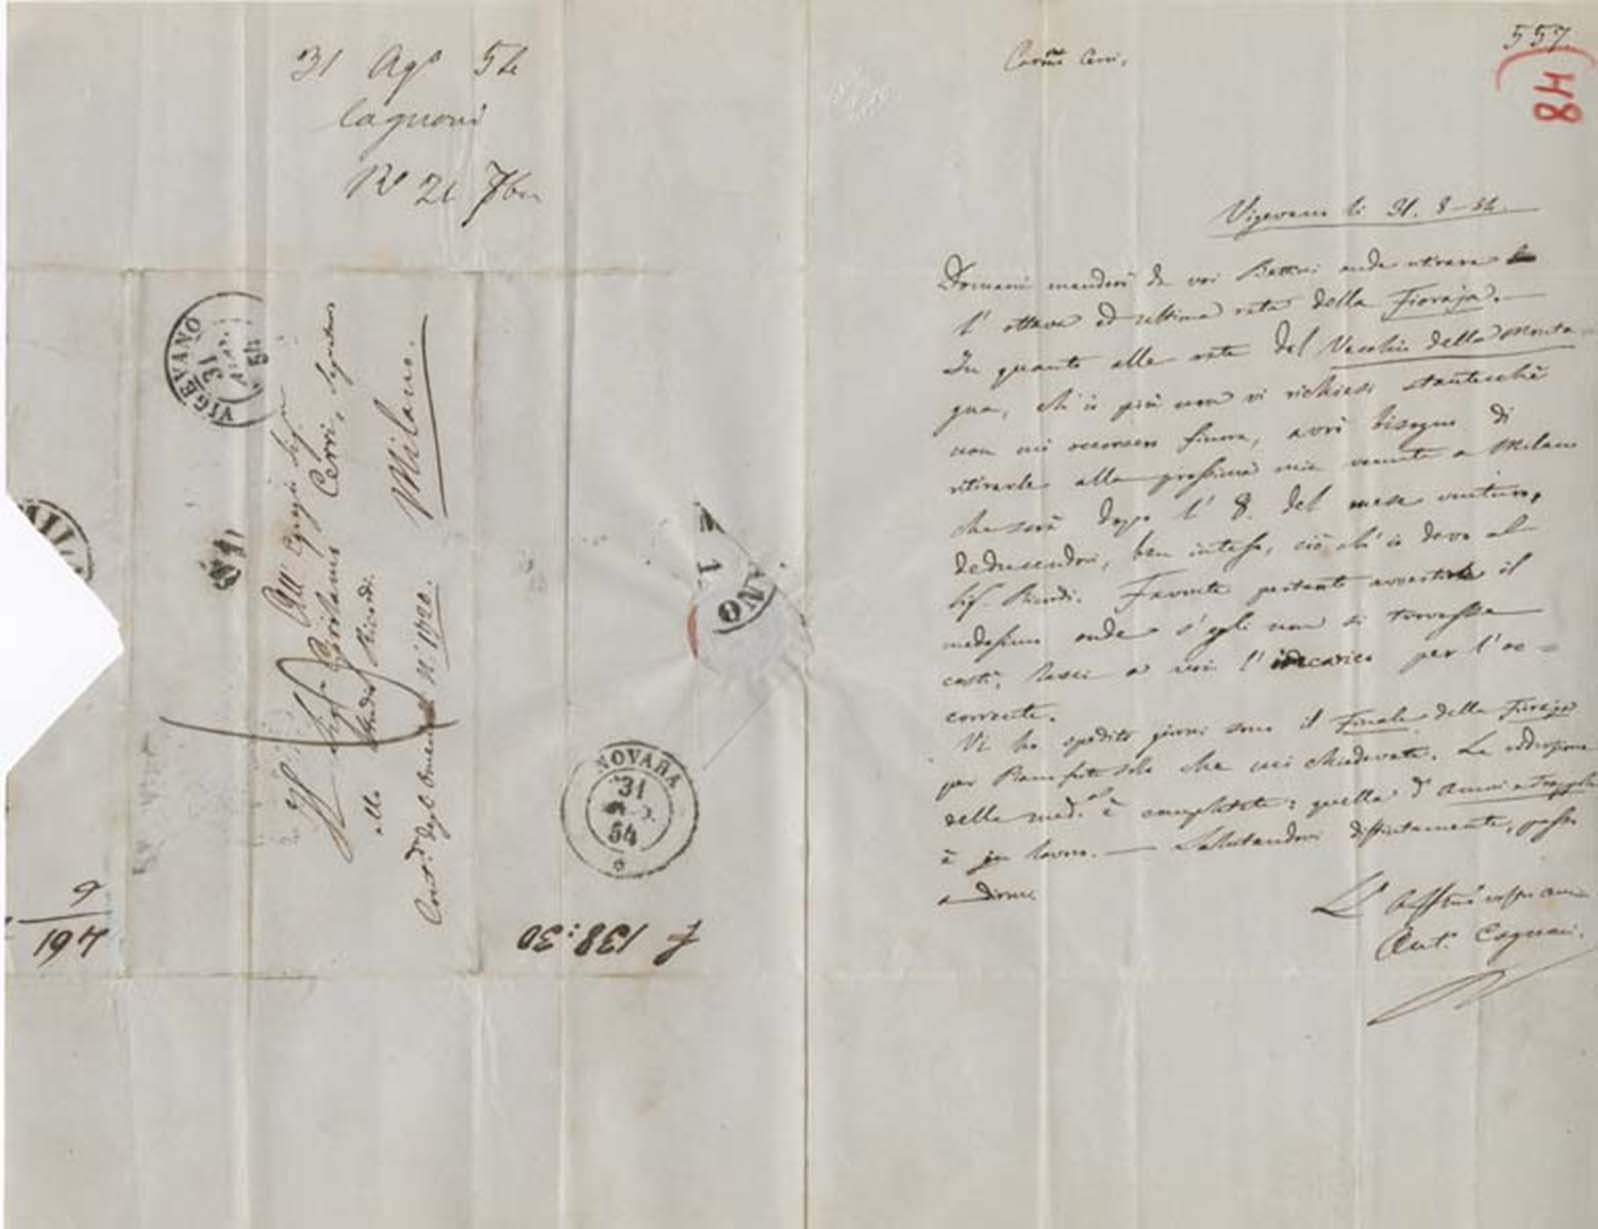 31 Ago 54
Cagnoni
Ro 21 7bre
VIGEVANO
31
AGO
54
All' Egregio Sigr
Il Sigr Girolamo Cerri, Segretario
allo Studio Ricordi
Contrada degli Omenoni N. 1720.
Milano.
NOVARA
31
AGO.
54
ANO
f 138:30
9
197
557
48
Carmo Cerri,
Vigevano li 31. 8-54.
Domani manderò da voi Bettini onde ritirare
l' ottava ed ultima rata della Fioraja.—
In quanto alle rate del Vecchio della Monta-
gna, ch' io più non vi richiesi stantecchè
non mi occorsero finora, avrò bisogno di
ritirarle alla prossima mia venuta a Milano
che sarà dopo l' 8. del mese venturo,
deducendovi, ben inteso, ciò ch' io devo al
Sig. Ricordi. Favorite pertanto avvertirne il
medesimo onde s' egli non si trovasse
costì, lasci a voi l' incarico per l' oc-
corrente.
Vi ho spedito giorni sono il Finale della Fioraja
per Pianoforte solo che mi chiedevate. La riduzione
della medma è completata: quella d' Amori e Trappole
è in lavoro. — Salutandovi distintamente, passo
a dirmi
L' Affmo vostro amico
Ant. Cagnoni.